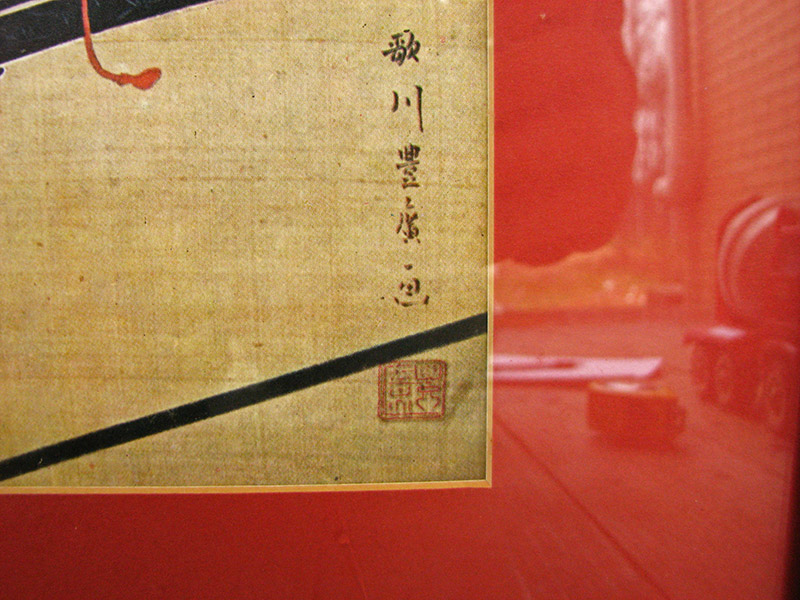 歌川豊廣画